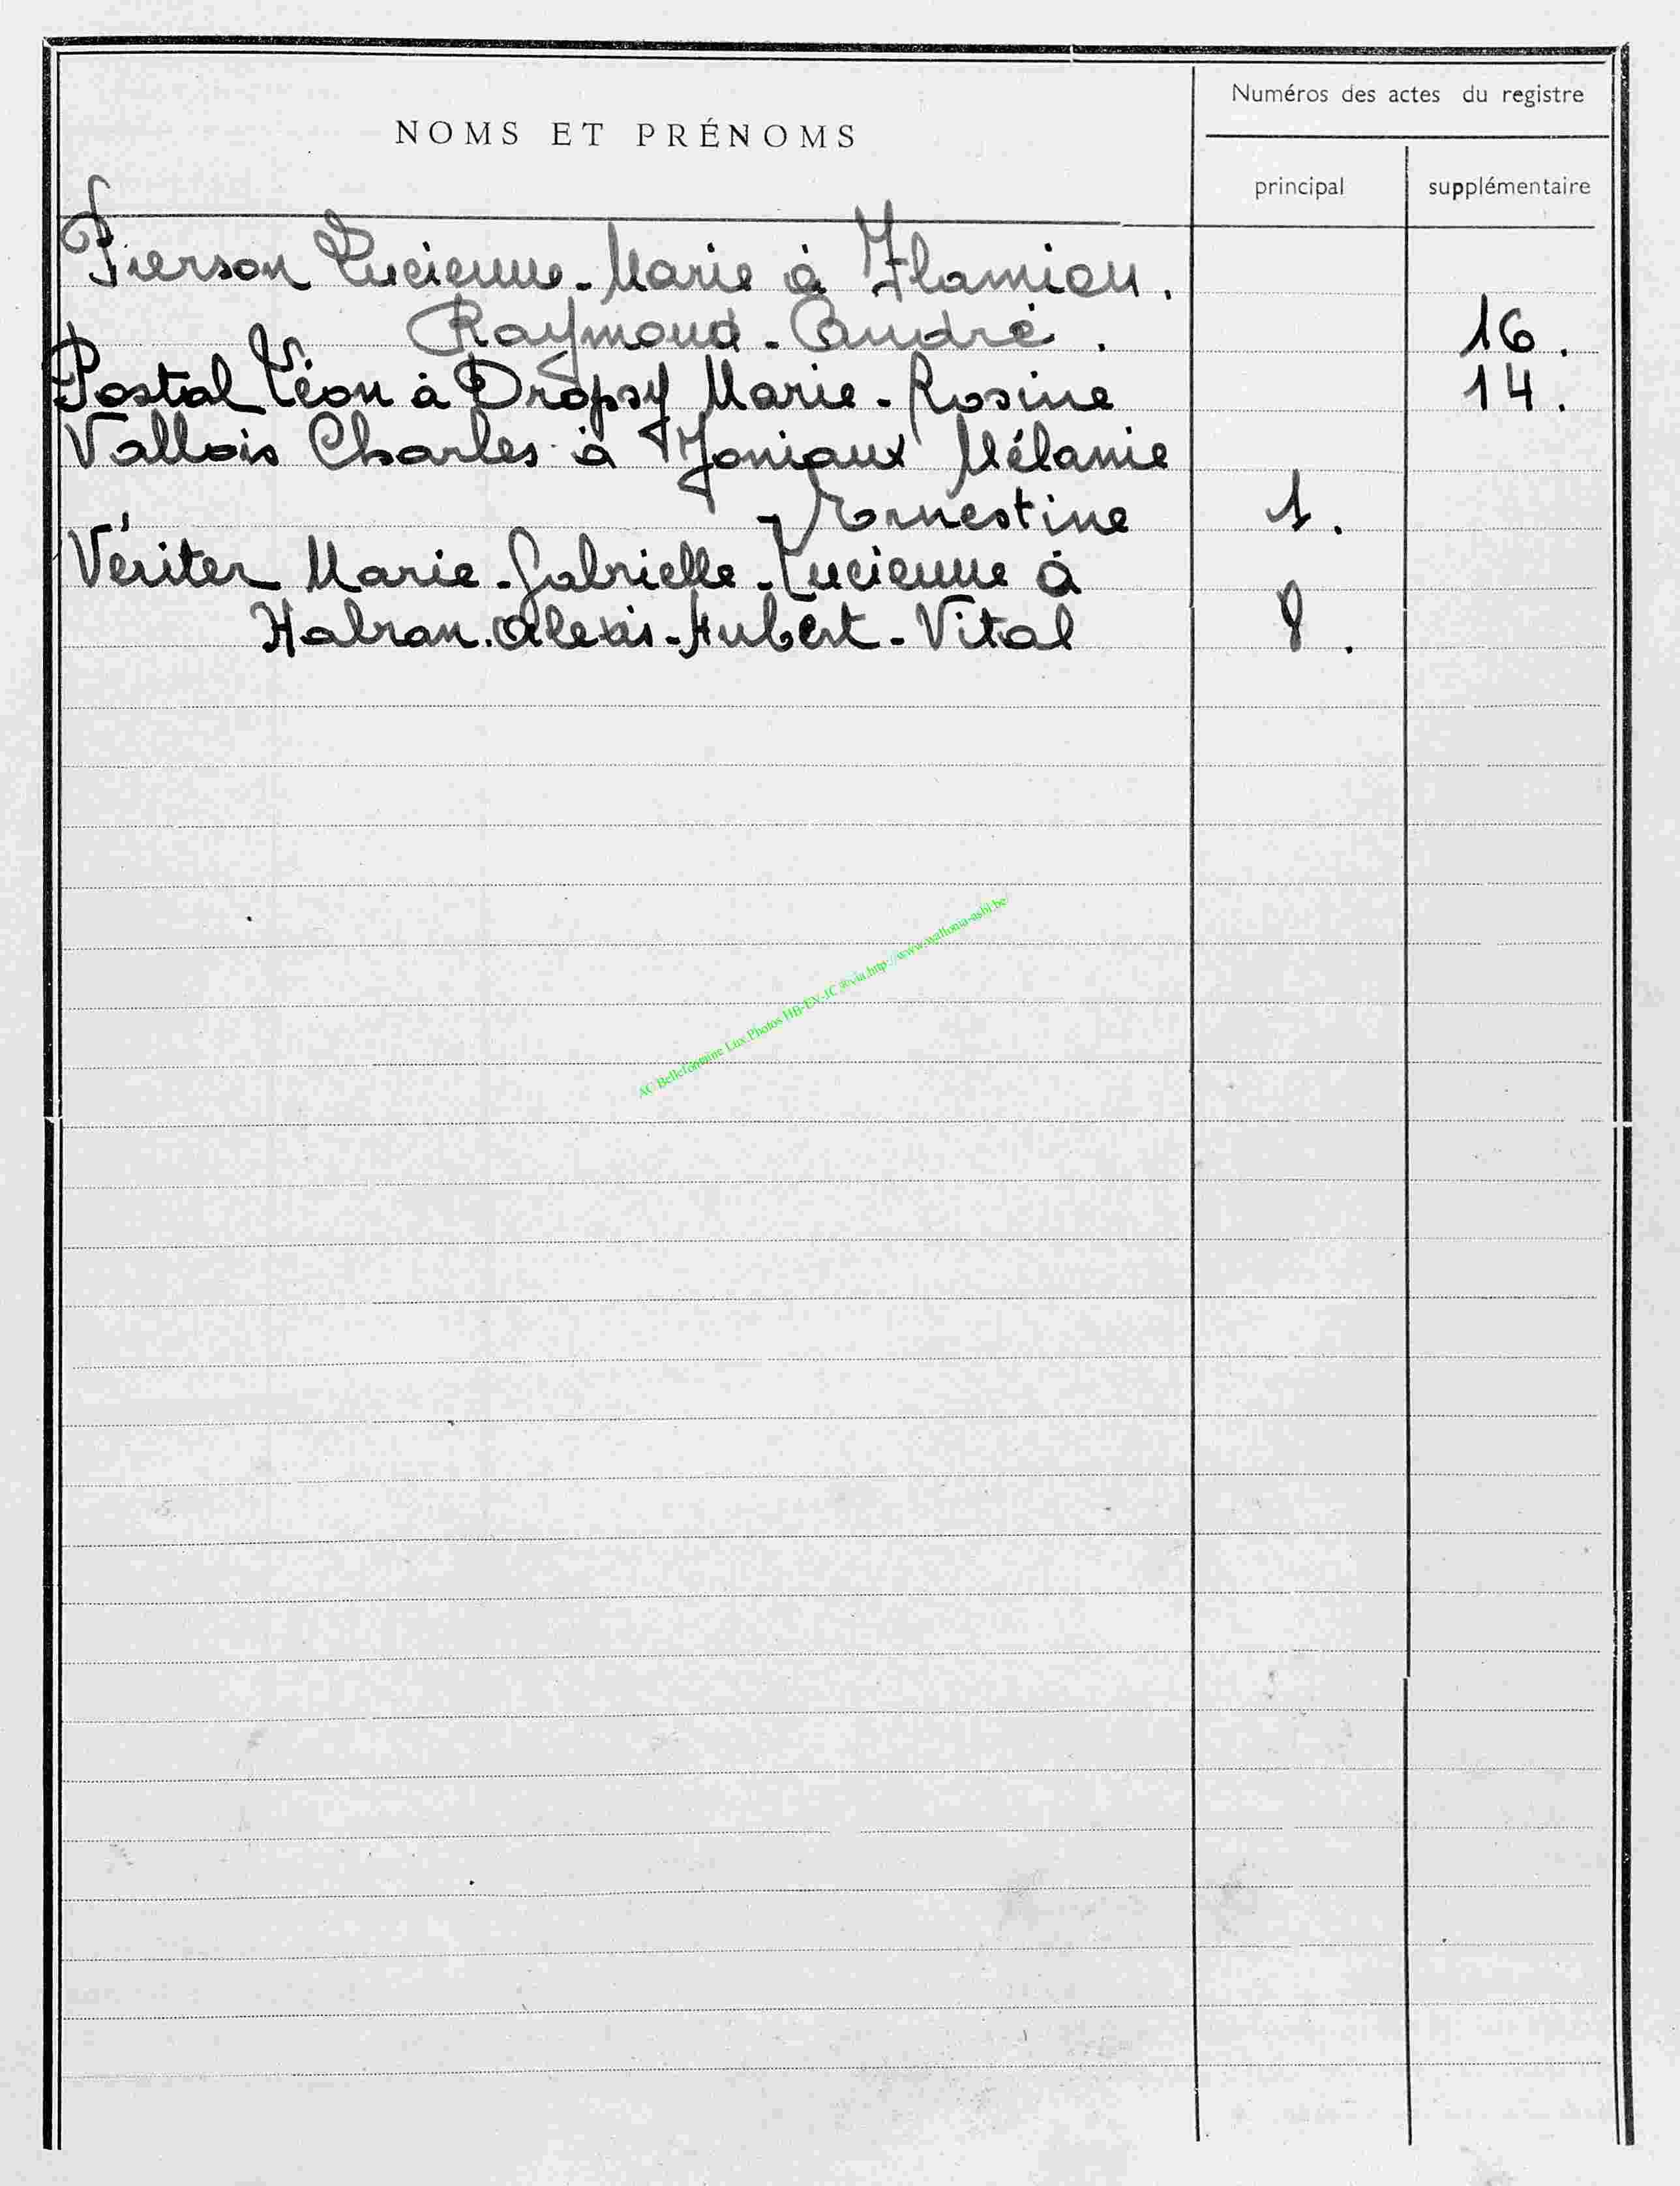 NOMS ET PRÉNOMS
Numéros des actes du registre
principal
supplémentaire
Pierson Lucienne-Marie à Flamion.
Raymond-André. 16.
Postal Léon à Dropsy Marie-Rosine 14.
Vallois Charles à Joniaux Mélanie
-Ernestine 1.
Vériter Marie-Gabrielle-Lucienne à
Habran.Alexis-Hubert-Vital 8.
AC Bellefontaine Lux Photos HB-EV-JC @via http://www.wallonia-asbl.be/